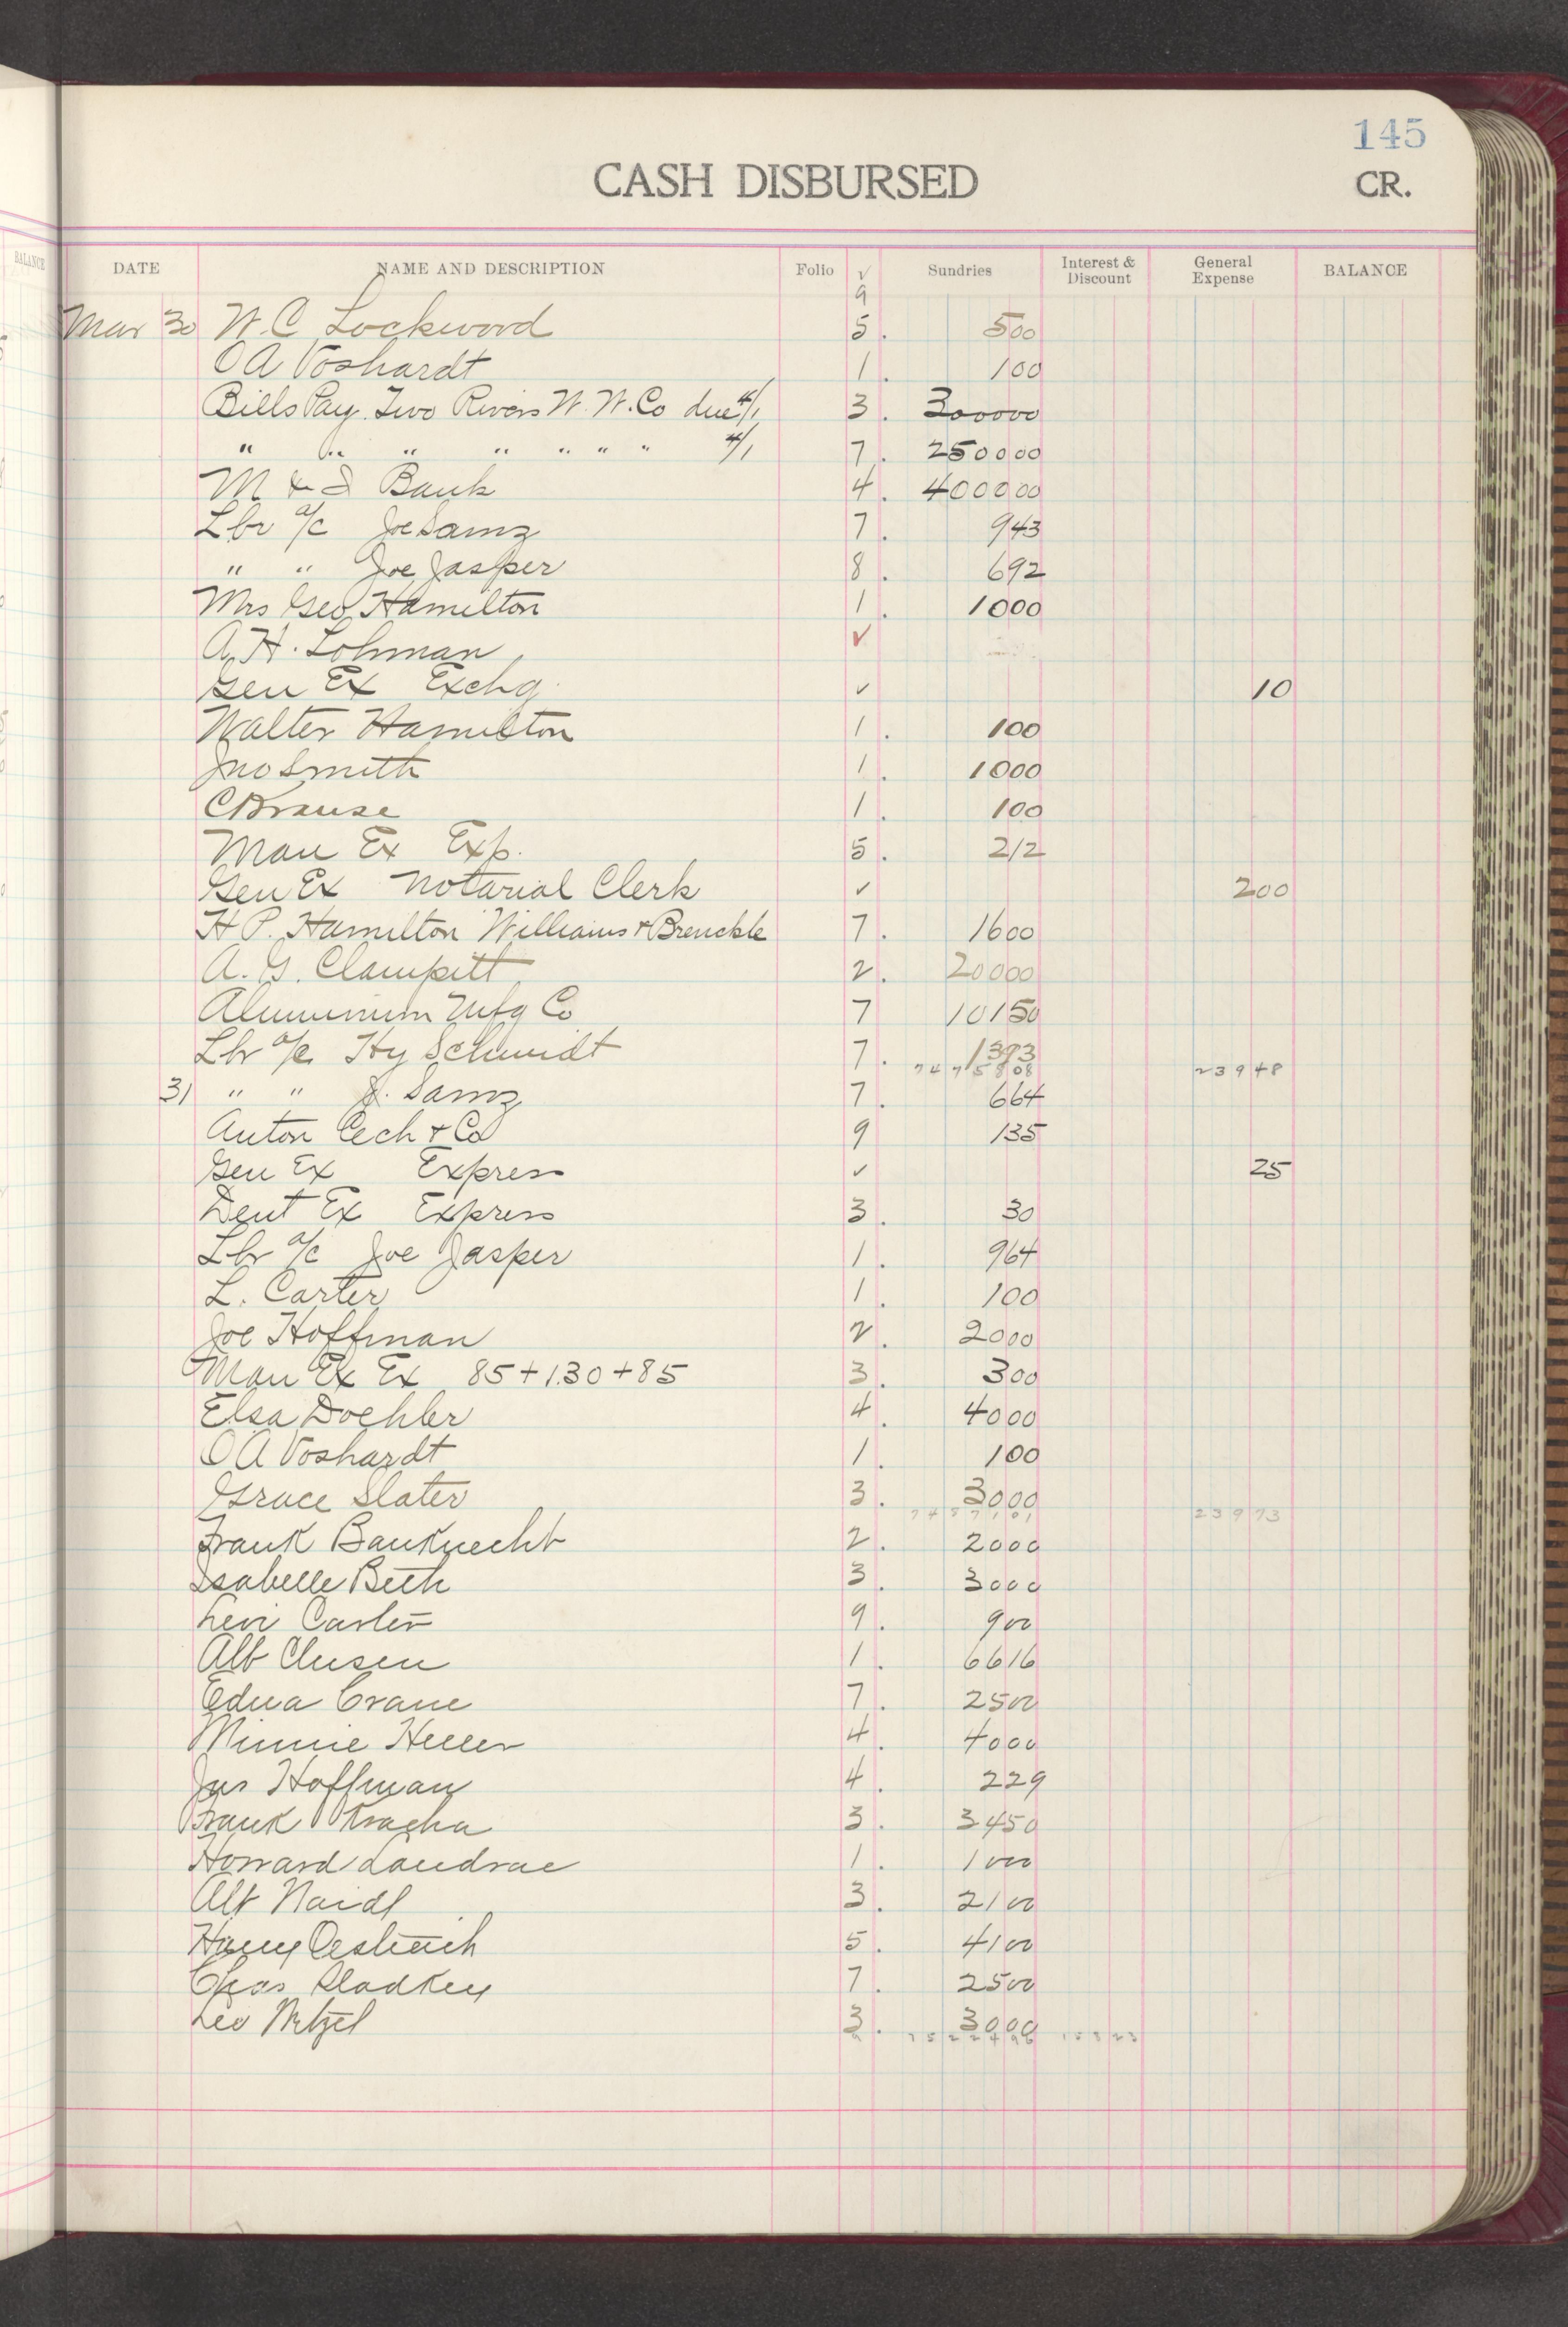 145
CASH DISBURSED CR.
BALANCE DATE NAME AND DESCRIPTION Folio ✓ Sundries Interest & Discount General Expense BALANCE
9
Mar 30 W. C Lockwood 5 . 500
O A Voshardt 1 . 100
Bills Pay. Two Rivers W. W. Co due 4/1 3 . 300000
" " " " " " " 4/1 7 . 250000
M & I Bank 4 . 400000
Lbr a/c Joe Samz 7 . 943
" " Joe Jasper 8 . 692
Mrs Geo Hamilton 1 . 1000
A. H. Lohman ✓
Gen Ex Exchg. ✓ 10
Walter Hamilton 1 . 100
Jno Smith 1 . 1000
C Krause 1 . 100
Man Ex Exp. 5 . 212
Gen Ex Notarial Clerk ✓ 200
H P. Hamilton Williams & Brenckle 7 . 1600
A. G. Clampitt 2 . 20000
Aluminum Mfg Co 7 10150
Lbr a/c Hy Schmidt 7 . 1393
7475808 23948
31 " " J. Samz 7 . 664
Anton Cech & Co 9 135
Gen Ex Express ✓ 25
Dent Ex Express 3 . 30
Lbr a/c Joe Jasper 1 . 964
L. Carter 1 . 100
Joe Hoffman 2 . 2000
Man Ex Ex 85+1.30+85 3 . 300
Elsa Doehler 4 . 4000
O A Voshardt 1 . 100
Grace Slater 3 . 3000
23973
Frank Bauknecht 2 . 2000
Isabelle Beth 3 . 3000
Levi Carter 9 . 900
Alb Clusen 1 . 6616
Edna Crane 7 . 2500
Minnie Heller 4 . 4000
Jas Hoffman 4 . 229
Frank Kracha 3 . 3450
Howard Landrae 1 . 1000
Alb Naidl 3 . 2100
Harry Oestreich 5 . 4100
Chas Sladkey 7 . 2500
Leo Wetzel 3 . 3000
9 15823